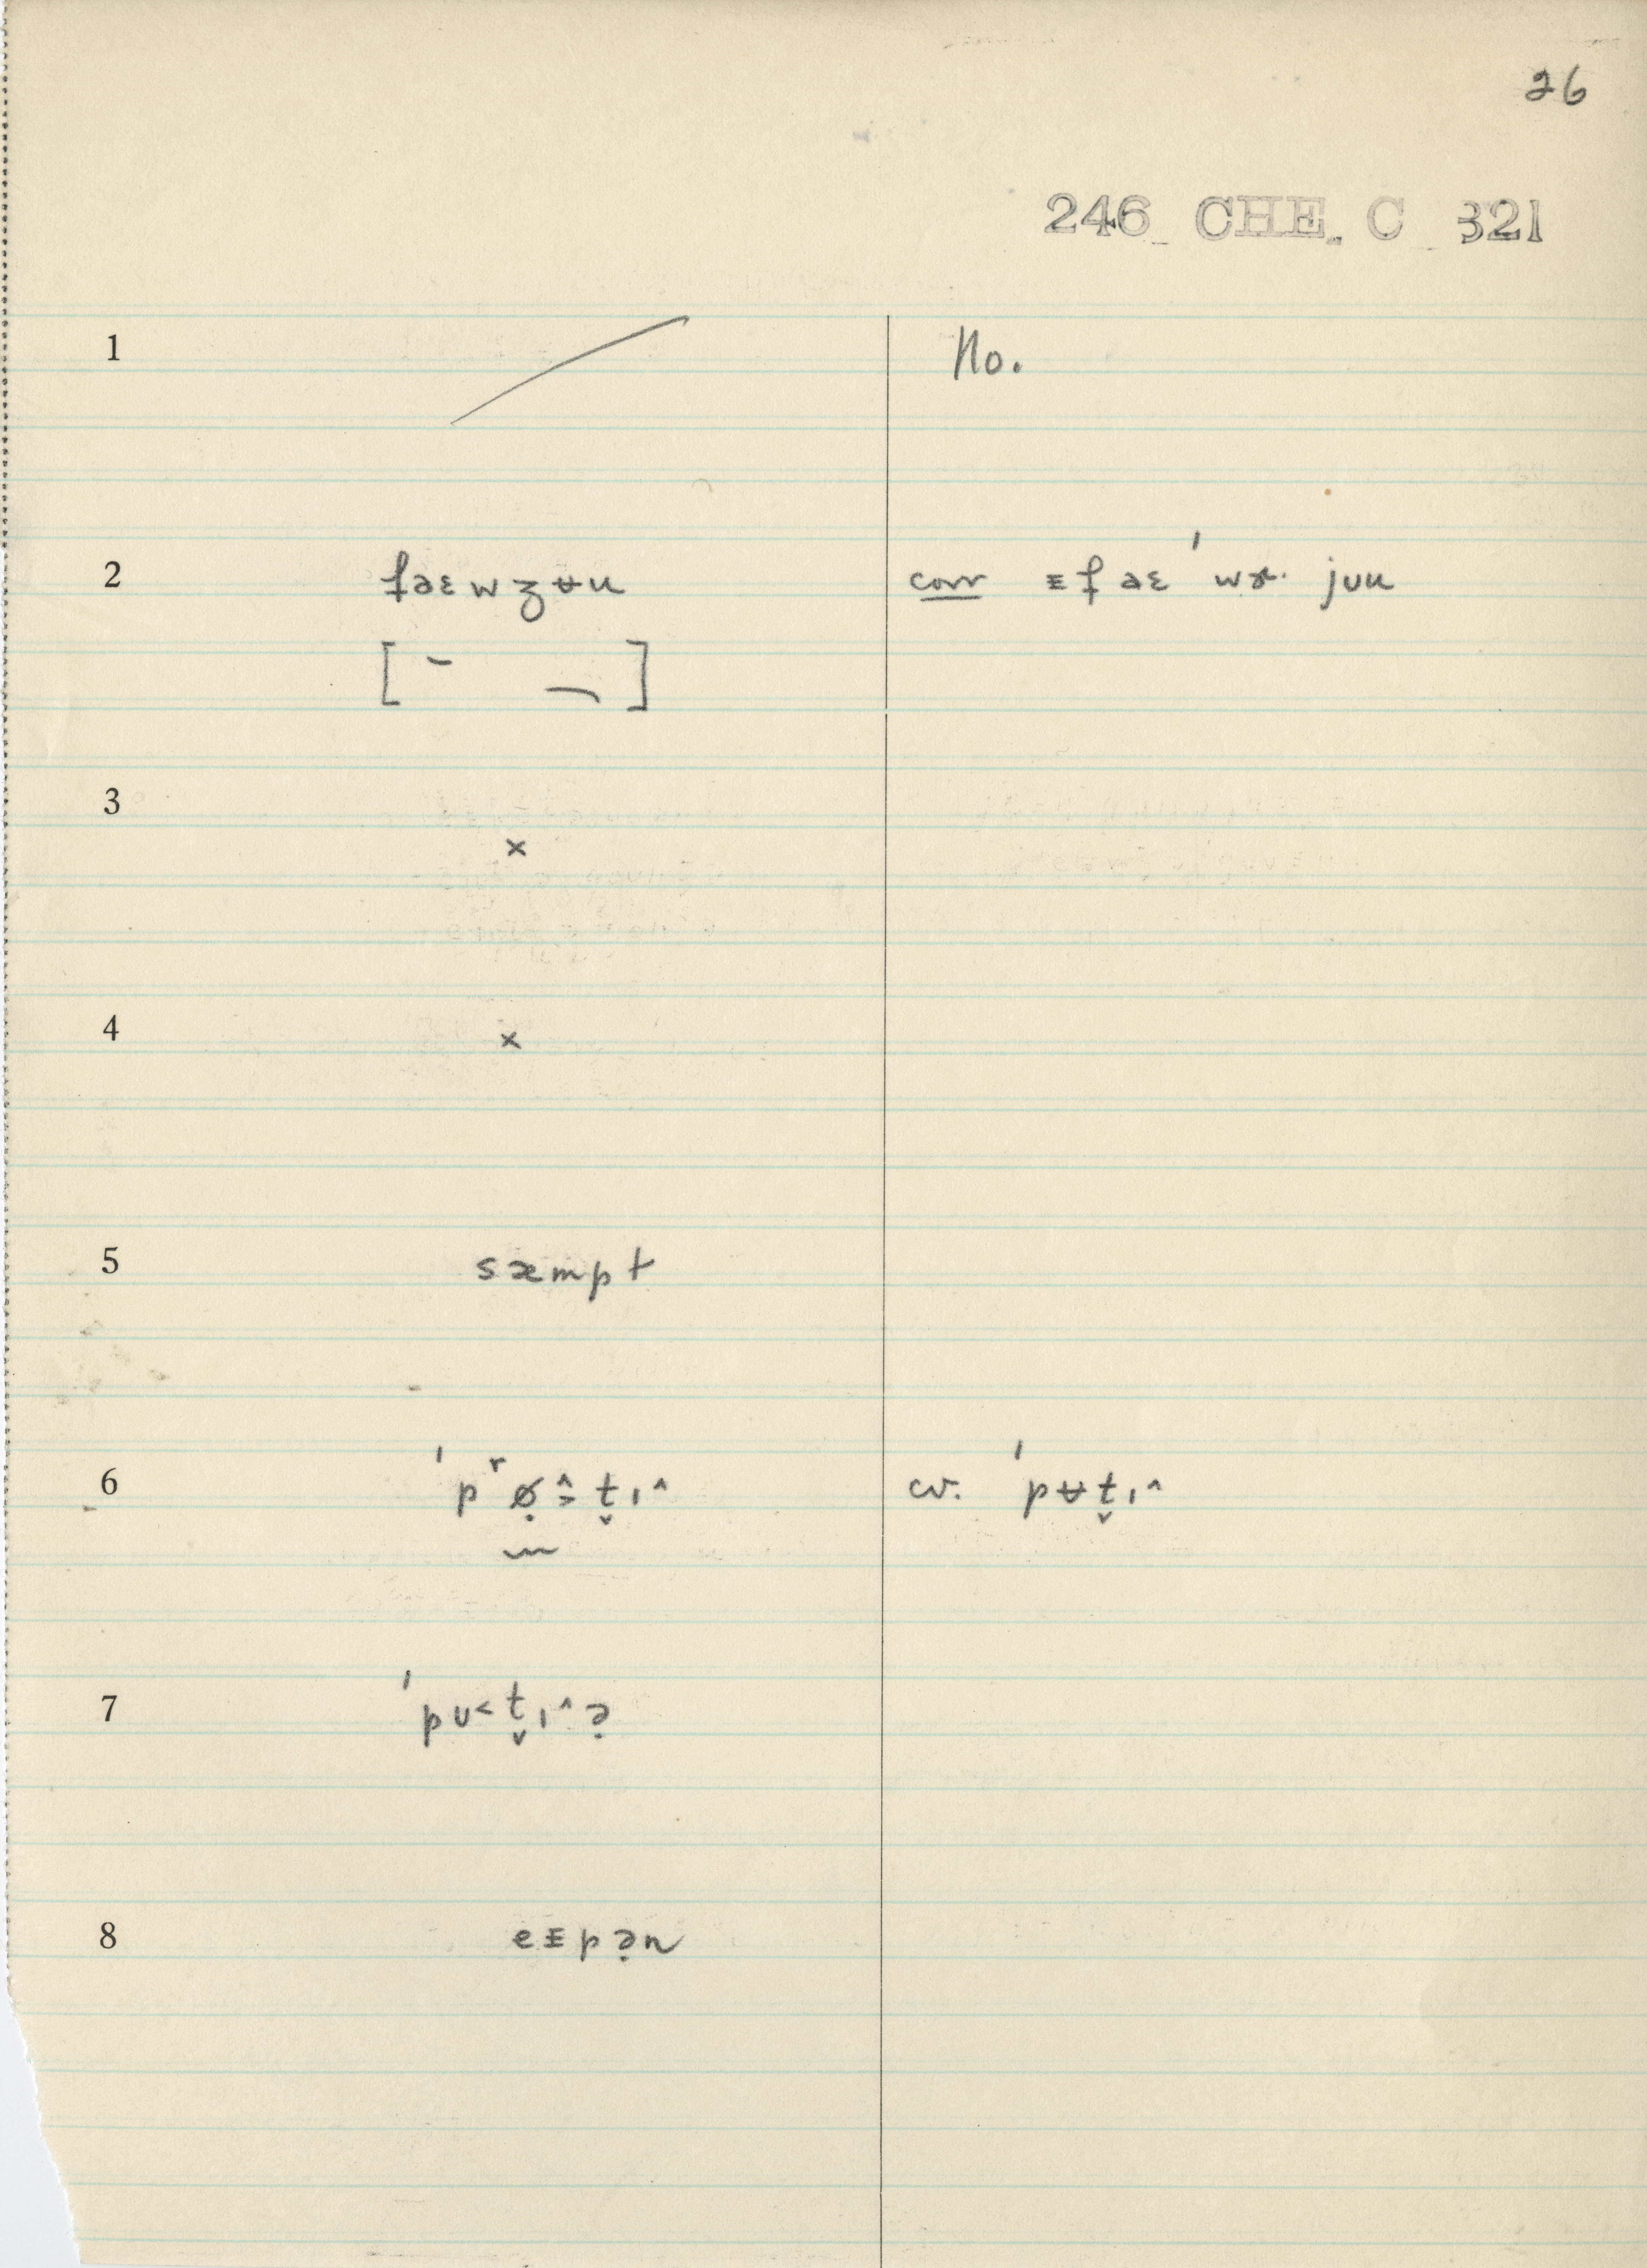 26
246 CHE. C 321
1 No.
2 fəɛwʒʉu corr ɪfəɛ ˈwɚ· juu
[ ]
3
×
4 ×
5 sæmpt
6 ˈpʳø̣t̬ɪ^ cv. ˈpʉt̬ɪ^
7 ˈpʊ<t̬ɪ^ə̣
8 eɪpə̣n